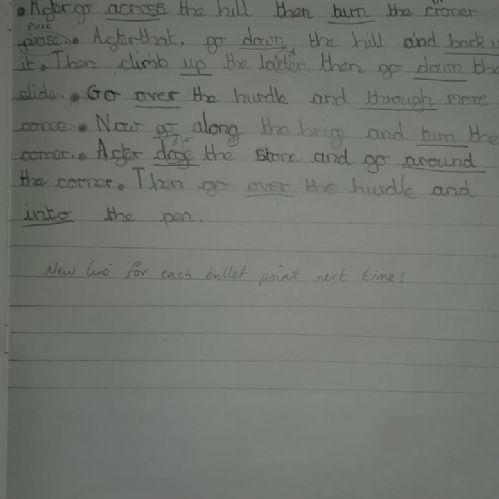 • After go across the hill then burn the croner
piese
pease. • Afterthat, go down the hill and back u
it. • Then climb up the lader, then go down the
slide. • Go over the hurdle and through more
cones. • Now go along the brig and burn the
corner. • After doge the stone and go around
the corner. • Then go over the hurdle and
into the pen.
New line for each bullet point next time!